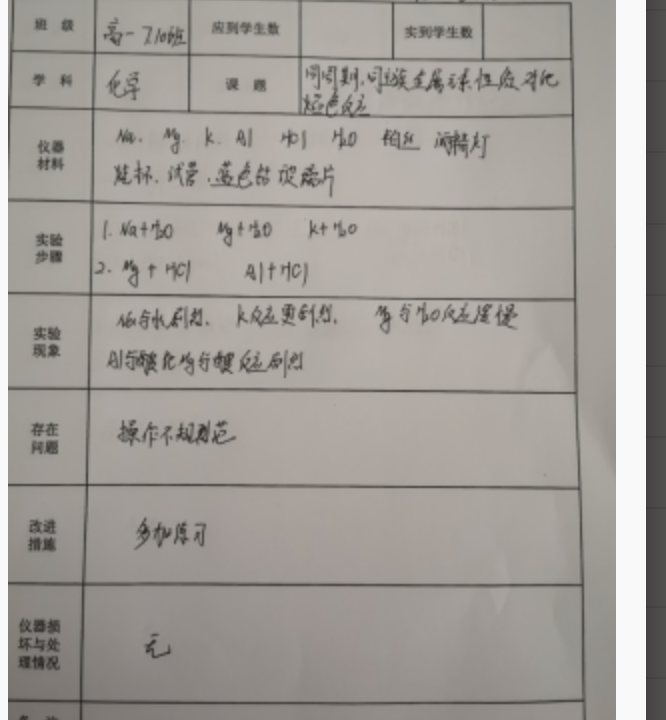 班 级 高一 7.10班 应到学生数 实到学生数
学 科 化学 课 题 同周期、同主族金属元素性质对比
焰色反应
仪器
材料
Na、 Mg K、Al HCl H2O 铂丝 酒精灯
烧杯、试管、蓝色钴玻璃片
实验
步骤
1. Na+H2O Mg+H2O K+H2O
2. Mg + HCl Al+HCl
实验
现象
Na与水剧烈、 K反应更剧烈、 Mg与H2O反应缓慢
Al与酸比Mg与酸反应剧烈
存在
问题
操作不规范
改进
措施
多加练习
仪器损
坏与处
理情况
无